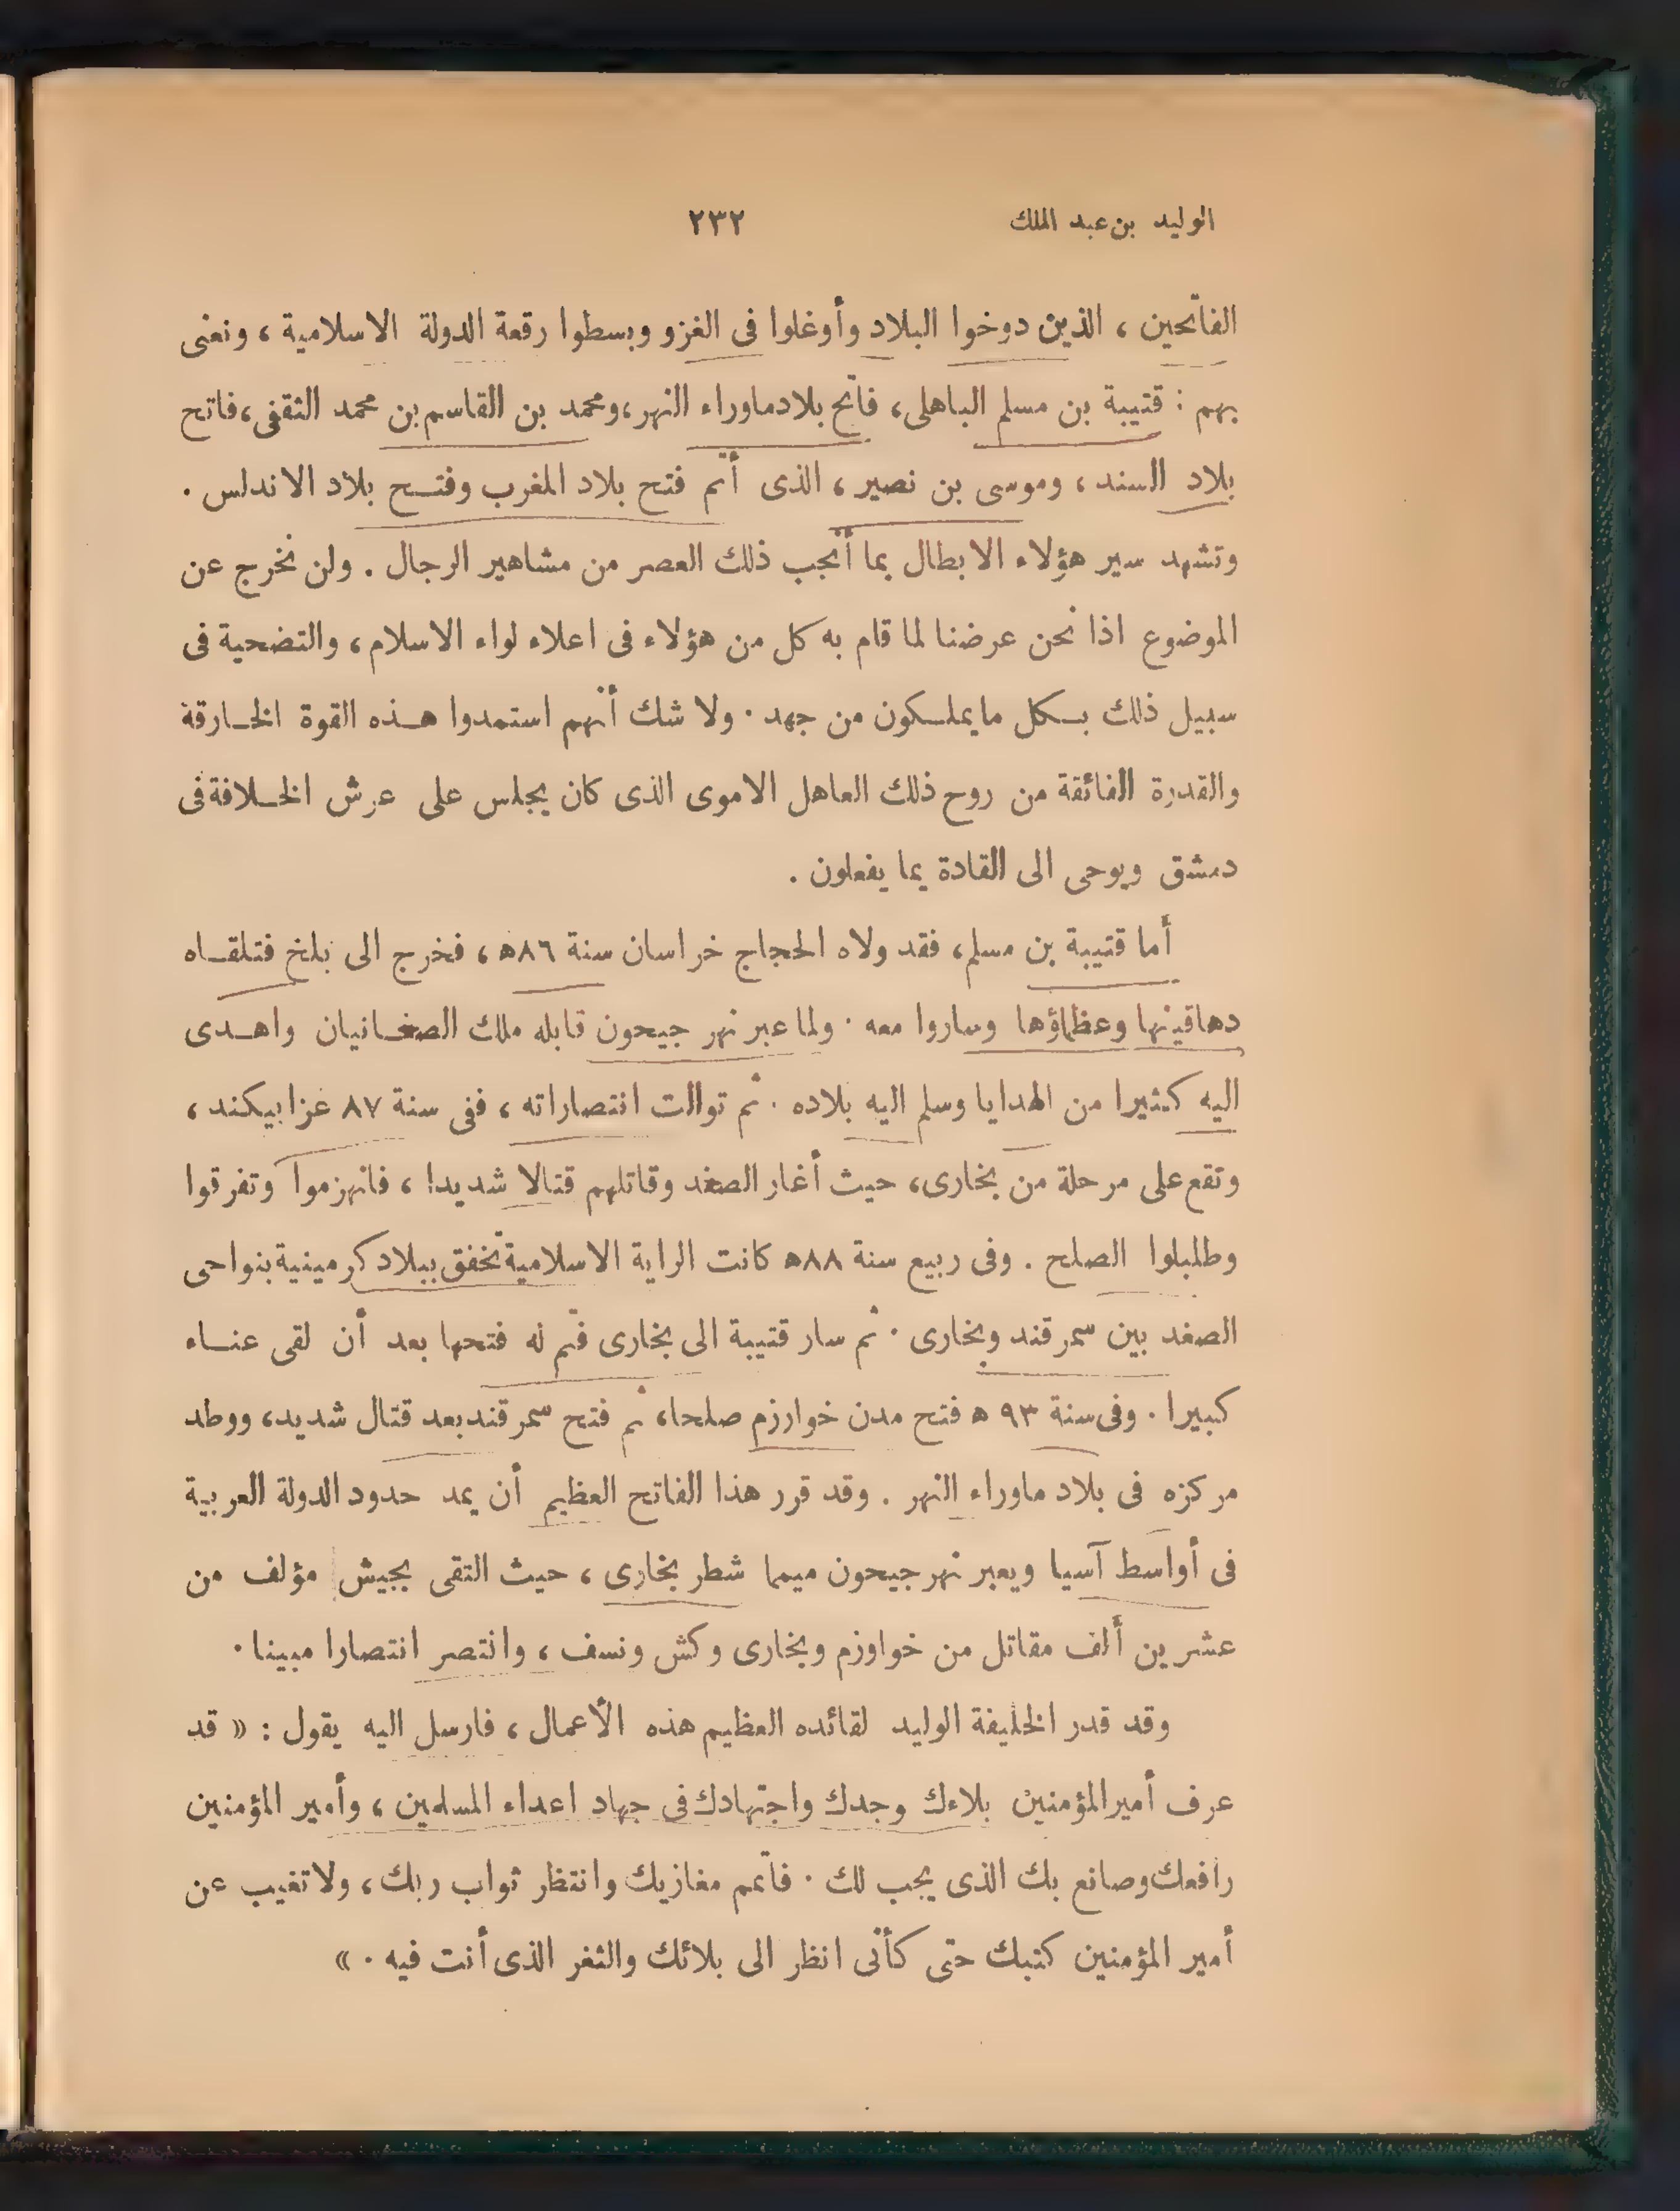 الوليد بن عبد الملك ٢٣٢
الفاتحين ، الذين دوخوا البلاد وأوغلوا فى الغزو وبسطوا رقعة الدولة الاسلامية ، ونعنى
بهم : قتيبة بن مسلم الباهلى، فاتح بلاد ماوراء النهر، ومحمد بن القاسم بن محمد الثقفى، فاتح
بلاد السند ، وموسى بن نصير ، الذى أتم فتح بلاد المغرب وفتح بلاد الاندلس .
وتشهد سير هؤلاء الابطال بما أنجب ذلك العصر من مشاهير الرجال . ولن نخرج عن
الموضوع اذا نحن عرضنا لما قام به كل من هؤلاء فى اعلاء لواء الاسلام ، والتضحية فى
سبيل ذلك بكل مايملكون من جهد . ولا شك أنهم استمدوا هذه القوة الخارقة
والقدرة الفائقة من روح ذلك العاهل الاموى الذى كان يجلس على عرش الخلافة فى
دمشق ويوحى الى القادة بما يفعلون .
أما قتيبة بن مسلم، فقد ولاه الحجاج خراسان سنة ٨٦ھ ، فخرج الى بلخ فتلقاه
دهاقينها وعظماؤها وساروا معه . ولما عبر نهر جيحون قابله ملك الصغانيان واهدى
اليه كثيرا من الهدايا وسلم اليه بلاده . ثم توالت انتصاراته ، ففى سنة ٨٧ غزا بيكند ،
وتقع على مرحلة من بخارى، حيث أغار الصغد وقاتلهم قتالا شديدا ، فانهزموا وتفرقوا
وطلبلوا الصلح . وفى ربيع سنة ٨٨ھ كانت الراية الاسلامية تخفق ببلاد كرمينية بنواحى
الصغد بين سمرقند وبخارى . ثم سار قتيبة الى بخارى فتم له فتحها بعد أن لقى عناء
كبيرا . وفى سنة ٩٣ ھ فتح مدن خوارزم صلحا، ثم فتح سمرقند بعد قتال شديد، ووطد
مركزه فى بلاد ماوراء النهر . وقد قرر هذا الفاتح العظيم أن يمد حدود الدولة العربية
فى أواسط آسيا ويعبر نهر جيحون ميمما شطر بخارى ، حيث التقى بجيش مؤلف من
عشرين ألف مقاتل من خواوزم وبخارى وكش ونسف ، وانتصر انتصارا مبينا .
وقد قدر الخليفة الوليد لقائده العظيم هذه الأعمال ، فارسل اليه يقول : « قد
عرف أمير المؤمنين بلاءك وجدك واجتهادك فى جهاد اعداء المسلمين ، وأمير المؤمنين
رافعك وصانع بك الذى يجب لك . فاتمم مغازيك وانتظر ثواب ربك ، ولا تغيب عن
أمير المؤمنين كتبك حتى كأنى انظر الى بلائك والثغر الذى أنت فيه . »